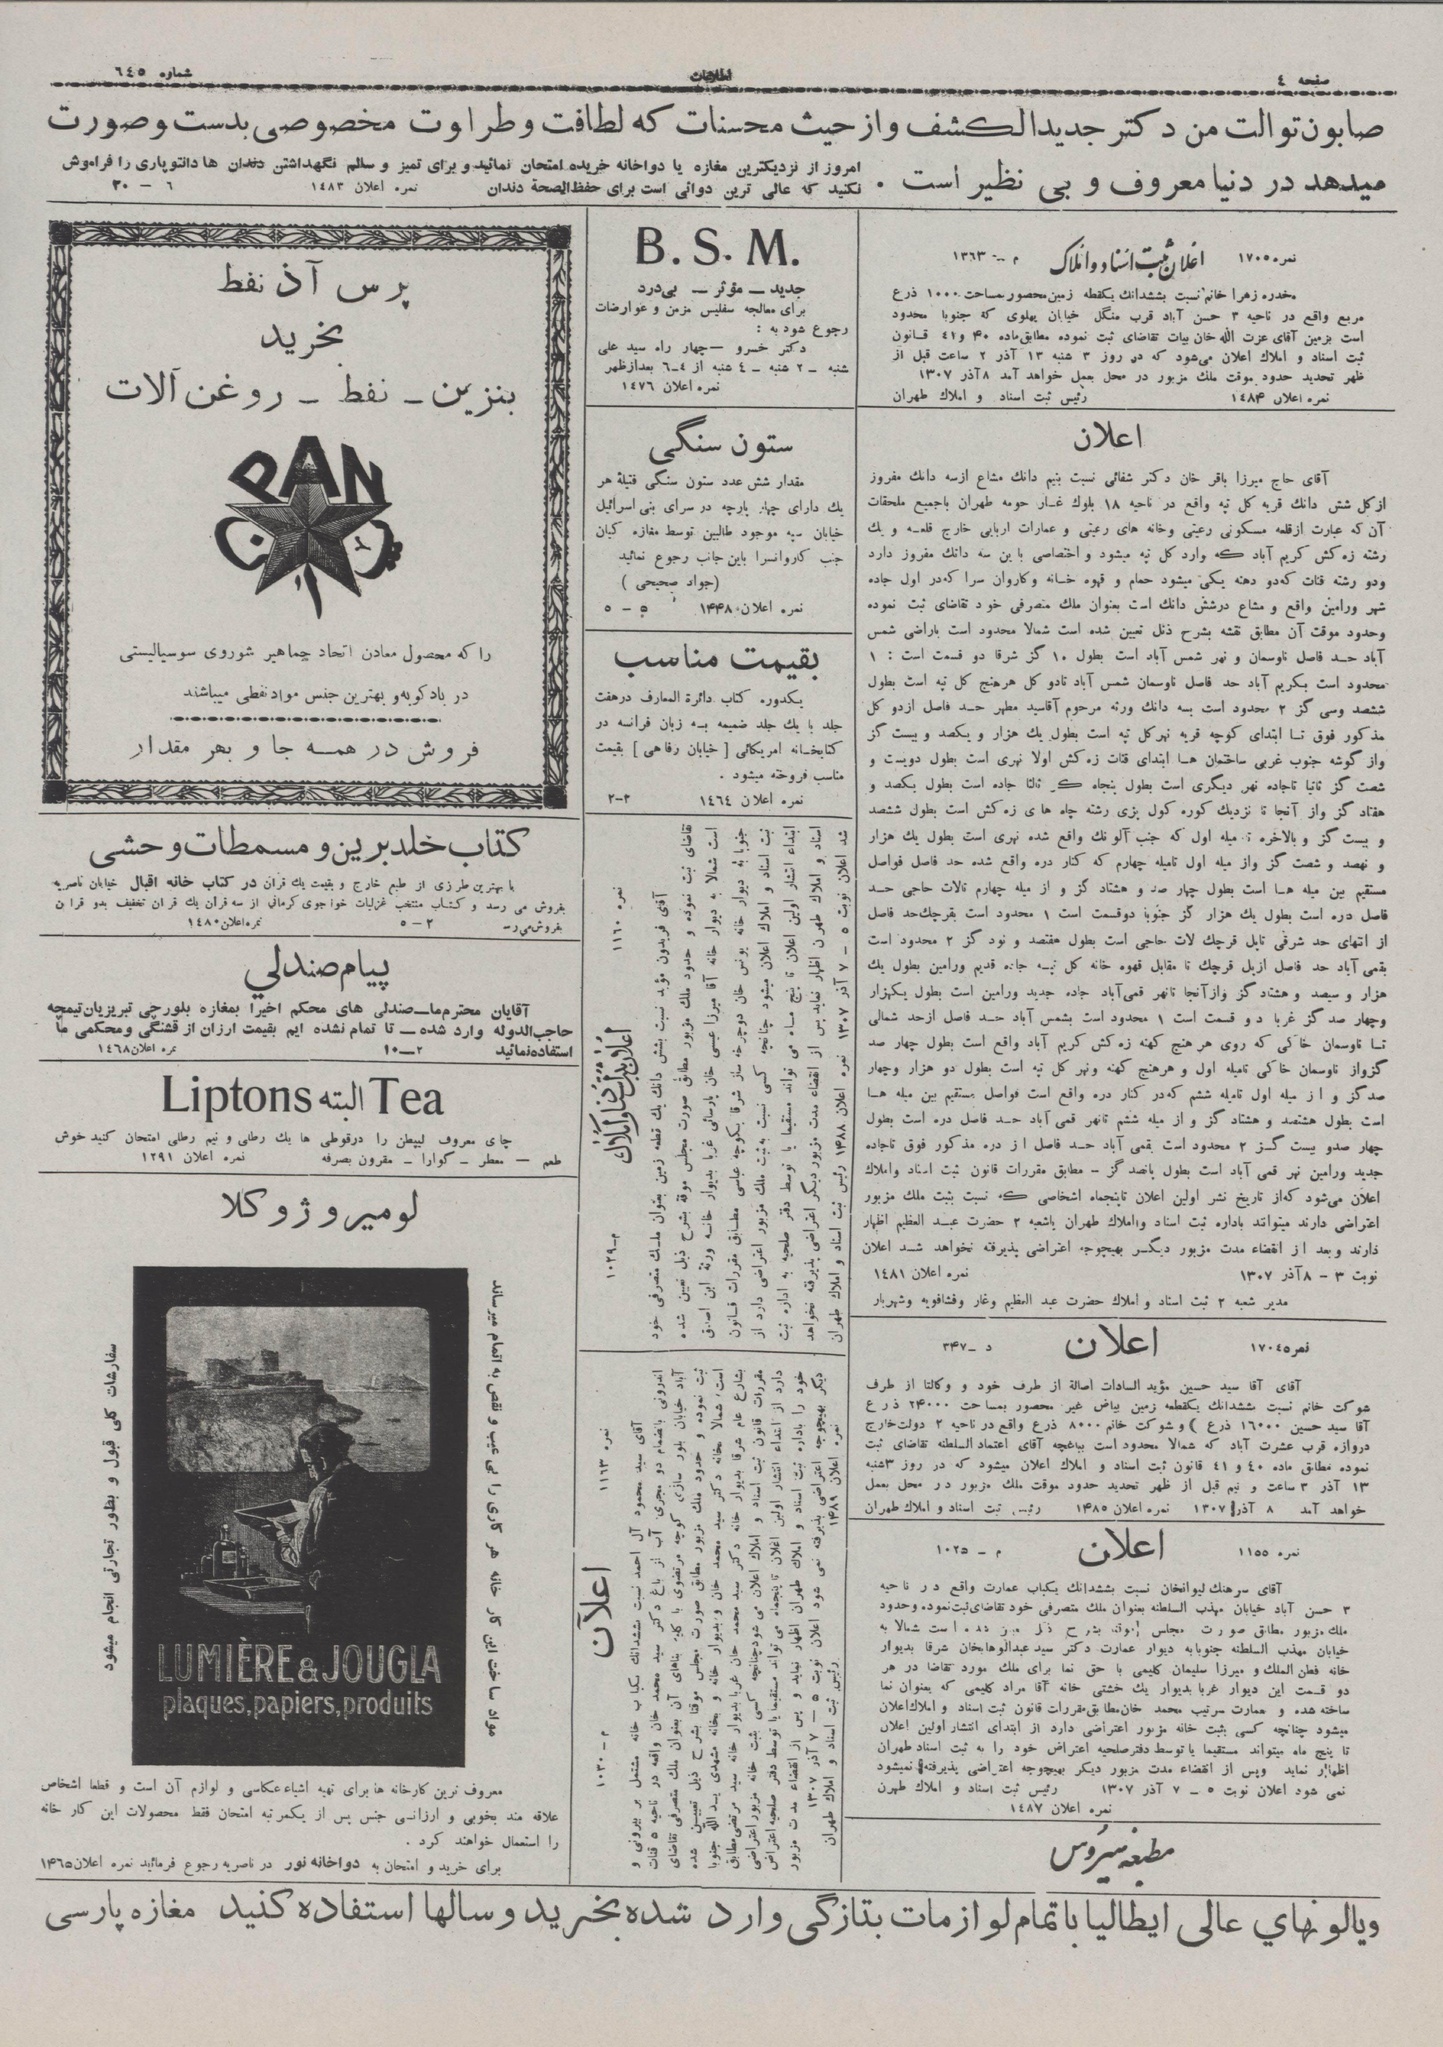 صفحه ٤
اطلاعات
شماره ٦٤٥
صابون توالت من دکتر جدیدالکشف و از حیث محسنات که لطافت و طراوت مخصوصی بدست و صورت
میدهد در دنیا معروف و بی نظیر است .
امروز از نزدیکترین مغازه یا دواخانه خریده امتحان نمائید و برای تمیز و سالم نگهداشتن دندان ها دانتوپاری را فراموش
نکنید که عالی ترین دوائی است برای حفظ الصحة دندان نمره اعلان ۱٤۸۳ ٦ – ۲۰
نمره ۱۷۰۵ اعلان ثبت اسناد و املاک م – ۱۳٦۳
مخدره زهرا خانم نسبت بششدانك یکقطعه زمین محصور مساحت ۱۰۰۰ ذرع
مربع واقع در ناحیه ۳ حسن آباد قرب منگل خیابان پهلوی که جنوبا محدود
است بزمین آقای عزت الله خان بیات تقاضای ثبت نموده مطابق ماده ۴۰ و ٤۱ قانون
ثبت اسناد و املاك اعلان می‌شود که در روز ۳ شنبه ۱۳ آذر ۲ ساعت قبل از
ظهر تحدید حدود موقت ملك مزبور در محل بعمل خواهد آمد ۸ آذر ۱۳۰۷
نمره اعلان ۱٤۸۴ رئیس ثبت اسناد و املاك طهران
اعلان
آقای حاج میرزا باقر خان دکتر شفائی نسبت بنیم دانك مشاع ازسه دانك مفروز
ازکل شش دانك قریه کل تپه واقع در ناحیه ۱۸ بلوك غار حومه طهران باجمیع ملحقات
آن که عبارت ازقلعه مسکونی رعیتی وخانه های رعیتی و عمارات اربابی خارج قلعه و یك
رشته زه کش کریم آباد که وارد کل تپه میشود و اختصاصی با ین سه دانك مفروز دارد
ودو رشته قنات که‌دو دهنه یکی میشود حمام و قهوه خانه وکاروان سرا که‌در اول جاده
شهر ورامین واقع و مشاع درشش دانك است بعنوان ملك متصرفی خود تقاضای ثبت نموده
وحدود موقت آن مطابق نقشه بشرح ذیل تعیین شده است شمالا محدود است باراضی شمس
آباد حد فاصل تاوسمان و نهر شمس آباد است بطول ۱۰ گز شرقا دو قسمت است : ۱
محدود است بکریم آباد حد فاصل تاوسمان شمس آباد تادو کل هرهنج کل تپه است بطول
ششصد وسی گز ۲ محدود است بسه دانك ورثه مرحوم آقاسید مطهر حد فاصل ازدو کل
مذکور فوق تا ابتدای کوچه قریه نهرکل تپه است بطول یك هزار و یکصد و بیست گز
واز گوشه جنوب غربی ساختمان ها ابتدای قنات زه کش اولا نهری است بطول دویست و
شصت گز ثانیا تاجاده نهر دیگری است بطول پنجاه گز ثالثا جاده است بطول یکصد و
هفتاد گز واز آنجا تا نزدیك کوره کول پزی رشته چاه های زه کش است بطول ششصد
و بیست گز و بالاخره تا میله اول که جنب آلونك واقع شده نهری است بطول یك هزار
و نهصد و شصت گز واز میله اول تامیله چهارم که کنار دره واقع شده حد فاصل فواصل
مستقیم بین میله ها است بطول چهار صد و هشتاد گز و از میله چهارم تالات حاجی حد
فاصل دره است بطول یك هزار گز جنوبا دوقسمت است ۱ محدود است بقرچك‌حد فاصل
از انتهای حد شرقی تاپل قرچك لات حاجی است بطول هفتصد و نود گز ۲ محدود است
بقمی آباد حد فاصل ازپل قرچك تا مقابل قهوه خانه کل تپه جاده قدیم ورامین بطول یك
هزار و سیصد و هشتاد گز وازآنجا تانهر قمی‌آباد جاده جدید ورامین است بطول یکهزار
وچهار صد گز غربا دو قسمت است ۱ محدود است بشمس آباد حد فاصل ازحد شمالی
تا تاوسمان خاکی که روی هرهنج کهنه زه کش کریم آباد واقع است بطول چهار صد
گزواز تاوسمان خاکی تامیله اول و هرهنج کهنه ونهر کل تپه است بطول دو هزار وچهار
صدگز و از میله اول تامیله ششم که‌در کنار دره واقع است فواصل مستقیم بین میله ها
است بطول هشتصد و هشتاد گز و از میله ششم تانهر قمی آباد حد فاصل دره است بطول
چهار صدو بیست گز ۲ محدود است بقمی آباد حد فاصل از دره مذکور فوق تاجاده
جدید ورامین نهر قمی آباد است بطول پانصد گز – مطابق مقررات قانون ثبت اسناد واملاك
اعلان می‌شود که‌از تاریخ نشر اولین اعلان تاپنجماه اشخاصی که نسبت بثبت ملك مزبور
اعتراضی دارند میتوانند باداره ثبت اسناد واملاك طهران یاشعبه ۲ حضرت عبد العظیم اظهار
دارند وبعد از انقضاء مدت مزبور دیگر بهیچوجه اعتراضی پذیرفته نخواهد شد اعلان
نوبت ۳ – ۸ آذر ۱۳۰۷ نمره اعلان ۱٤۸۱
مدیر شعبه ۲ ثبت اسناد و املاك حضرت عبد العظیم وغار وفشافویه وشهریار
نمره ۱۷۰٤۵ اعلان د – ۳۴۷
آقای آقا سید حسین مؤید السادات اصالة از طرف خود و وکالتا از طرف
شوکت خانم نسبت ششدانك یکقطعه زمین بیاض غیر محصور بمساحت ۲۴۰۰۰ ذرع
آقا سید حسین ۱٦۰۰۰ ذرع ) و شوکت خانم ۸۰۰۰ ذرع واقع در ناحیه ۲ دولت خارج
دروازه قرب عشرت آباد که شمالا محدود است بباغچه آقای اعتماد السلطنه تقاضای ثبت
نموده مطابق ماده ٤۰ و ٤۱ قانون ثبت اسناد و املاك اعلان میشود که در روز ۳شنبه
۱۳ آذر ۳ ساعت و نیم قبل از ظهر تحدید حدود موقت ملك مزبور در محل بعمل
خواهد آمد ۸ آذر ۱۳۰۷ نمره اعلان ۱٤۸۵ رئیس ثبت اسناد و املاك طهران
نمره ۱۱۵۵ اعلان م – ۱۰۲۵
آقای سرهنك لیوانخان نسبت بششدانك یکباب عمارت واقع در ناحیه
۳ حسن آباد خیابان مهذب السلطنه بعنوان ملك متصرفی خود تقاضای ثبت‌نموده وحدود
ملك مزبور مطابق صورت مجلس است شمالا به
خیابان مهذب السلطنه جنوبا به دیوار عمارت دکتر سید عبدالوهابخان شرقا بدیوار
خانه فطن الملك و میرزا سلیمان کلیمی با حق نما برای ملك مورد تقاضا در هر
دو قسمت این دیوار غربا بدیوار یك خشتی خانه آقا مراد کلیمی که بعنوان نما
ساخته شده و عمارت سرتیپ محمد خان‌مطابق‌مقررات قانون ثبت اسناد و املاك‌اعلان
میشود چنانچه کسی بثبت خانه مزبور اعتراضی دارد از ابتدای انتشار اولین اعلان
تا پنج ماه میتواند مستقیما یا توسط دفترصلحیه اعتراض خود را به ثبت اسناد طهران
اظهار نماید وپس از انقضاء مدت مزبور دیگر بهیچوجه اعتراضی پذیرفته نمیشود
نمی شود اعلان نوبت ۵ – ۷ آذر ۱۳۰۷ رئیس ثبت اسناد و املاك طهران
نمره اعلان ۱٤۸۷
مطبعه سیروس
B. S. M.
جدید – مؤثر – بی‌درد
برای معالجه سفلیس مزمن و عوارضات
رجوع شود به :
دکتر خسرو – چهار راه سید علی
شنبه – ۲ شنبه – ٤ شنبه از ٤–٦ بعدازظهر
نمره اعلان ۱٤۷٦
ستون سنگی
مقدار شش عدد ستون سنگی فتیلهٔ هر
یك دارای چهار پارچه در سرای بنی اسرائیل
خیابان سپه موجود طالبین توسط مغازه کیان
جنب کاروانسرا باین جانب رجوع نمائید
(جواد صحیحی)
نمره اعلان ۱۴۴۸ ۵ – ۵
بقیمت مناسب
یکدوره کتاب دائرة المعارف درهفت
جلد با یك جلد ضمیمه به زبان فرانسه در
کتابخانه امریکائی [ خیابان رفاهی ] بقیمت
مناسب فروخته میشود .
نمره اعلان ۱٤٦٤ ۲–۲
نمره ۱۱٦۰ اعلان ثبت اسناد و املاک م – ۱۰۲۹
آقای فریدون مؤید نسبت بشش دانك یك قطعه زمین بعنوان ملك متصرفی خود
تقاضای ثبت نموده و حدود ملك مزبور مطابق صورت مجلس موقه بشرح ذیل تعیین شده
است شمالا به دیوار خانه آقا میرزا عیسی خان پارسائی غربا بدیوار خانه ورثه ابن اصدق
جنوبا به دیوار خانه یونس خان دوچرخه ساز شرقا بکوچه عباسی مطابق مقررات قانون
ثبت اسناد و املاك اعلان میشود چنانچه کسی نسبت به ثبت ملك مزبور اعتراضی دارد از
ابتداء انتشار اولین اعلان تا پنج ماه می تواند مستقیما یا توسط دفتر صلحیه به اداره ثبت
اسناد و املاك طهران اظهار نماید پس از انقضاء مدت مزبور دیگر اعتراضی پذیرفته نخواهد
شد اعلان نوبت ۵ – ۷ آذر ۱۳۰۷ نمره اعلان ۱۴۸۸ رئیس ثبت اسناد و املاك طهران
نمره ۱۱٦۳ اعلان م – ۱۰۳۰
آقای سید محمود آل احمد نسبت بششدانك یکباب خانه مشتمل بر بیرونی و
اندرونی بانضمام دو مجری آب از باغ دکتر سید محمد خان واقعه در ناحیه ۵ قنات
آباد خیابان بلور سازی کوچه مرتضوی با کلیه بناهای آن بعنوان ملك متصرفی تقاضای
ثبت نموده و حدود ملك مزبور مطابق صورت مجلس موقتا بشرح ذیل تعیین شده
است، شمالا بخانه دکتر سید محمد خان و بدیوار خانه و بخانه مشهدی یدالله جنوبا
بشارع عام شرقا بدیوار خانه دکتر سید محمد خان غربا بدیوار خانه سید مرتضی مطابق
مقررات قانون ثبت اسناد و املاك اعلان می شود چنانچه کسی بثبت خانه مزبور اعتراضی
دارد از ابتداء انتشار اولین اعلان تا پنجماه می تواند مستقیما یا توسط دفتر صلحیه اعتراض
خود را باداره ثبت اسناد و املاك طهران اظهار نماید و پس از انقضاء مدت مزبور
دیگر بهیچوجه اعتراضی پذیرفته نمی شود اعلان نوبت ۵ – ۷ آذر ۱۳۰۷
نمره اعلان ۱۴۸۹ رئیس ثبت اسناد و املاك طهران
پرس آذ نفط
بخرید
بنزین – نفط – روغن آلات
PAN
را که محصول معادن اتحاد جماهیر شوروی سوسیالیستی
در بادکوبه و بهترین جنس مواد نفطی میباشند
فروش در همه جا و بهر مقدار
کتاب خلدبرین و مسمطات وحشی
با بهترین طرزی از طبع خارج و بقیمت یك قران در کتاب خانه اقبال خیابان ناصریه
بفروش می رسد و کتاب منتخب غزلیات خواجوی کرمانی از سه قران یك قران تخفیف بدو قران
بفروش میرسد ۲ – ۵ نمره اعلان ۱٤۸۰
پیام صندلي
آقایان محترم ما – صندلی های محکم اخیرا بمغازه بلورچی تبریزیان تیمچه
حاجب‌الدوله وارد شده – تا تمام نشده ایم بقیمت ارزان از قشنگی ومحکمی ما
استفاده نمائید ۲ – ۱۰ نمره اعلان ۱٤٦۸
Liptons البته Tea
چای معروف لیپطن را درقوطی ها یك رطلی و نیم رطلی امتحان کنید خوش
طعم – معطر – گوارا – مقرون بصرفه نمره اعلان ۱۲۹۱
لومیر و ژوکلا
سفارشات کلی قبول و بطور تجارتی انجام میشود
مواد ساخت این کار خانه هر کاری را بی عیب و نقص به اتمام میرساند
LUMIÈRE & JOUGLA
plaques, papiers, produits
معروف ترین کارخانه ها برای تهیه اشیاء عکاسی و لوازم آن است و قطعا اشخاص
علاقه مند بخوبی و ارزانی جنس پس از یکمرتبه امتحان فقط محصولات این کار خانه
را استعمال خواهند کرد .
برای خرید و امتحان به دواخانه نور در ناصریه رجوع فرمائید نمره اعلان ۱۴٦۵
ویالونهاي عالی ایطالیا با تمام لوازمات بتازگی وارد شده بخرید و سالها استفاده کنید مغازه پارسی